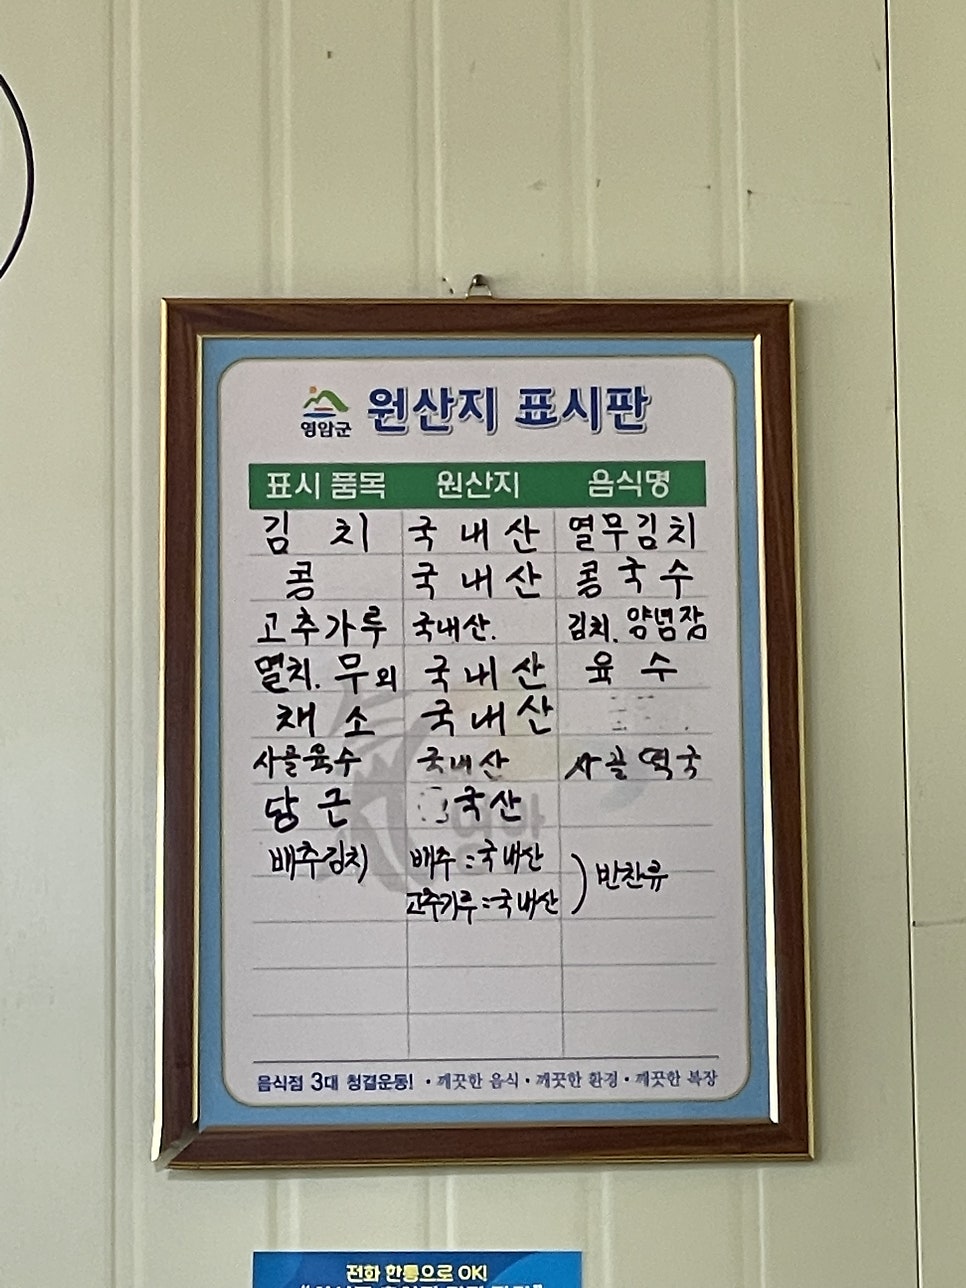 영암군 원산지 표시판
표시 품목 원산지 음식명
김 치 국 내 산 열무김치
콩 국 내 산 콩 국 수
고추가루 국내산. 김치. 양념장
멸치. 무외 국 내 산 육 수
채 소 국 내 산
사골육수 국내산 사골 떡국
당 근 국산
배추김치 배추 : 국내산
고추가루 : 국내산 ) 반찬류
음식점 3대 청결운동! • 깨끗한 음식 • 깨끗한 환경 • 깨끗한 복장
전화 한통으로 OK!